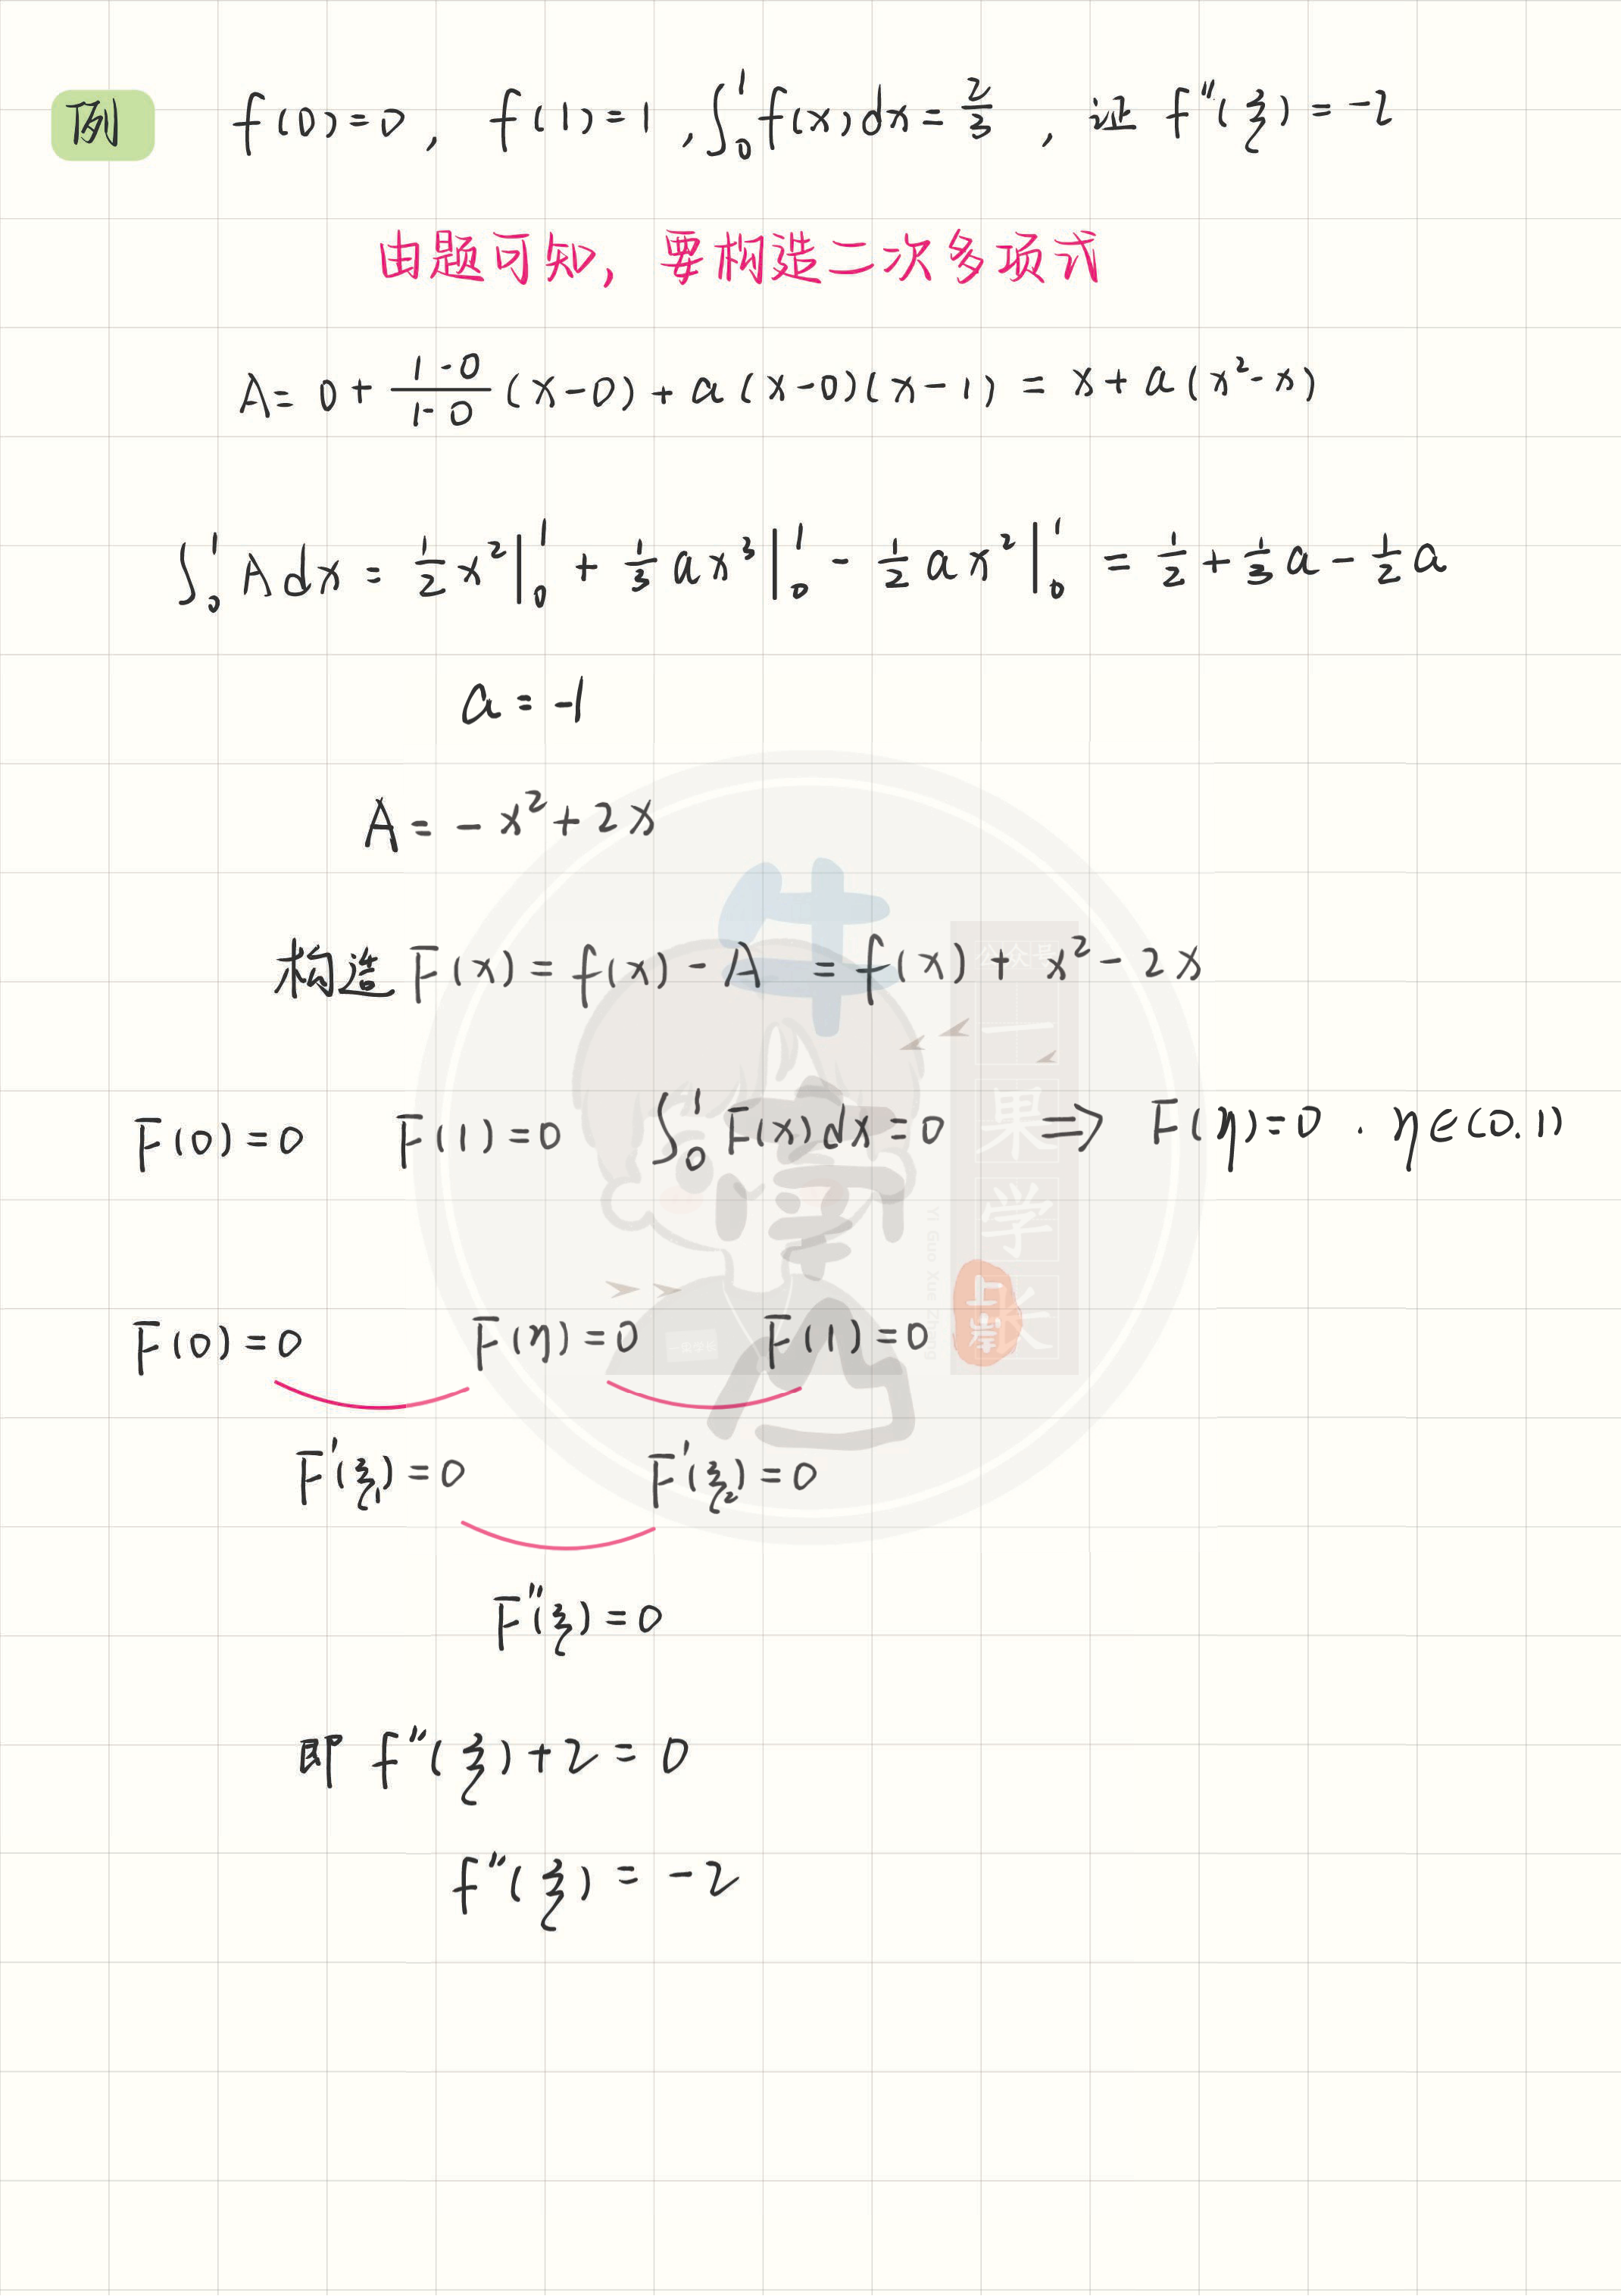 例 f(0)=0, f(1)=1, ∫₀¹f(x)dx=2/3, 证 f″(ξ)=-2
由题可知, 要构造二次多项式
A= 0+ (1-0)/(1-0) (x-0)+a(x-0)(x-1) = x+a(x²-x)
∫₀¹ A dx = 1/2 x²|₀¹ + 1/3 ax³|₀¹ - 1/2 ax²|₀¹ = 1/2+1/3 a-1/2 a
a=-1
A=-x²+2x
构造 F(x)=f(x)-A =f(x)+x²-2x
F(0)=0 F(1)=0 ∫₀¹ F(x)dx=0 ⇒ F(η)=0 . η∈(0.1)
F(0)=0 F(η)=0 F(1)=0
F′(ξ₁)=0 F′(ξ₂)=0
F″(ξ)=0
即 f″(ξ)+2=0
f″(ξ)=-2
公众号
一果学长
Yi Guo Xue Zhang
上岸